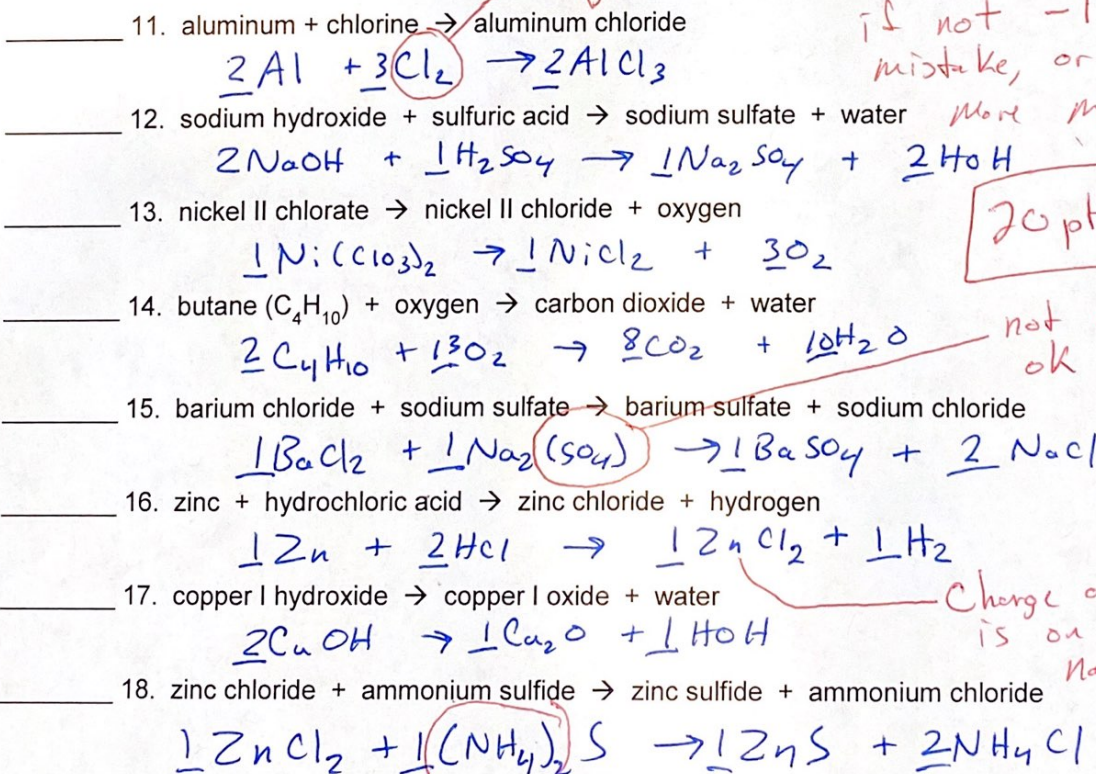 11. aluminum + chlorine → aluminum chloride
if not -1
2 Al + 3 Cl₂ → 2 AlCl₃
mistake, or
12. sodium hydroxide + sulfuric acid → sodium sulfate + water
More
2 NaOH + 1 H₂SO₄ → 1 Na₂SO₄ + 2 HOH
13. nickel II chlorate → nickel II chloride + oxygen
20 pt
1 Ni(ClO₃)₂ → 1 NiCl₂ + 3 O₂
14. butane (C₄H₁₀) + oxygen → carbon dioxide + water
not
ok
2 C₄H₁₀ + 13 O₂ → 8 CO₂ + 10 H₂O
15. barium chloride + sodium sulfate → barium sulfate + sodium chloride
1 BaCl₂ + 1 Na₂(SO₄) → 1 BaSO₄ + 2 NaCl
16. zinc + hydrochloric acid → zinc chloride + hydrogen
1 Zn + 2 HCl → 1 ZnCl₂ + 1 H₂
17. copper I hydroxide → copper I oxide + water
Charge
is on
2 CuOH → 1 Cu₂O + 1 HOH
18. zinc chloride + ammonium sulfide → zinc sulfide + ammonium chloride
1 ZnCl₂ + 1 (NH₄)₂S → 1 ZnS + 2 NH₄Cl